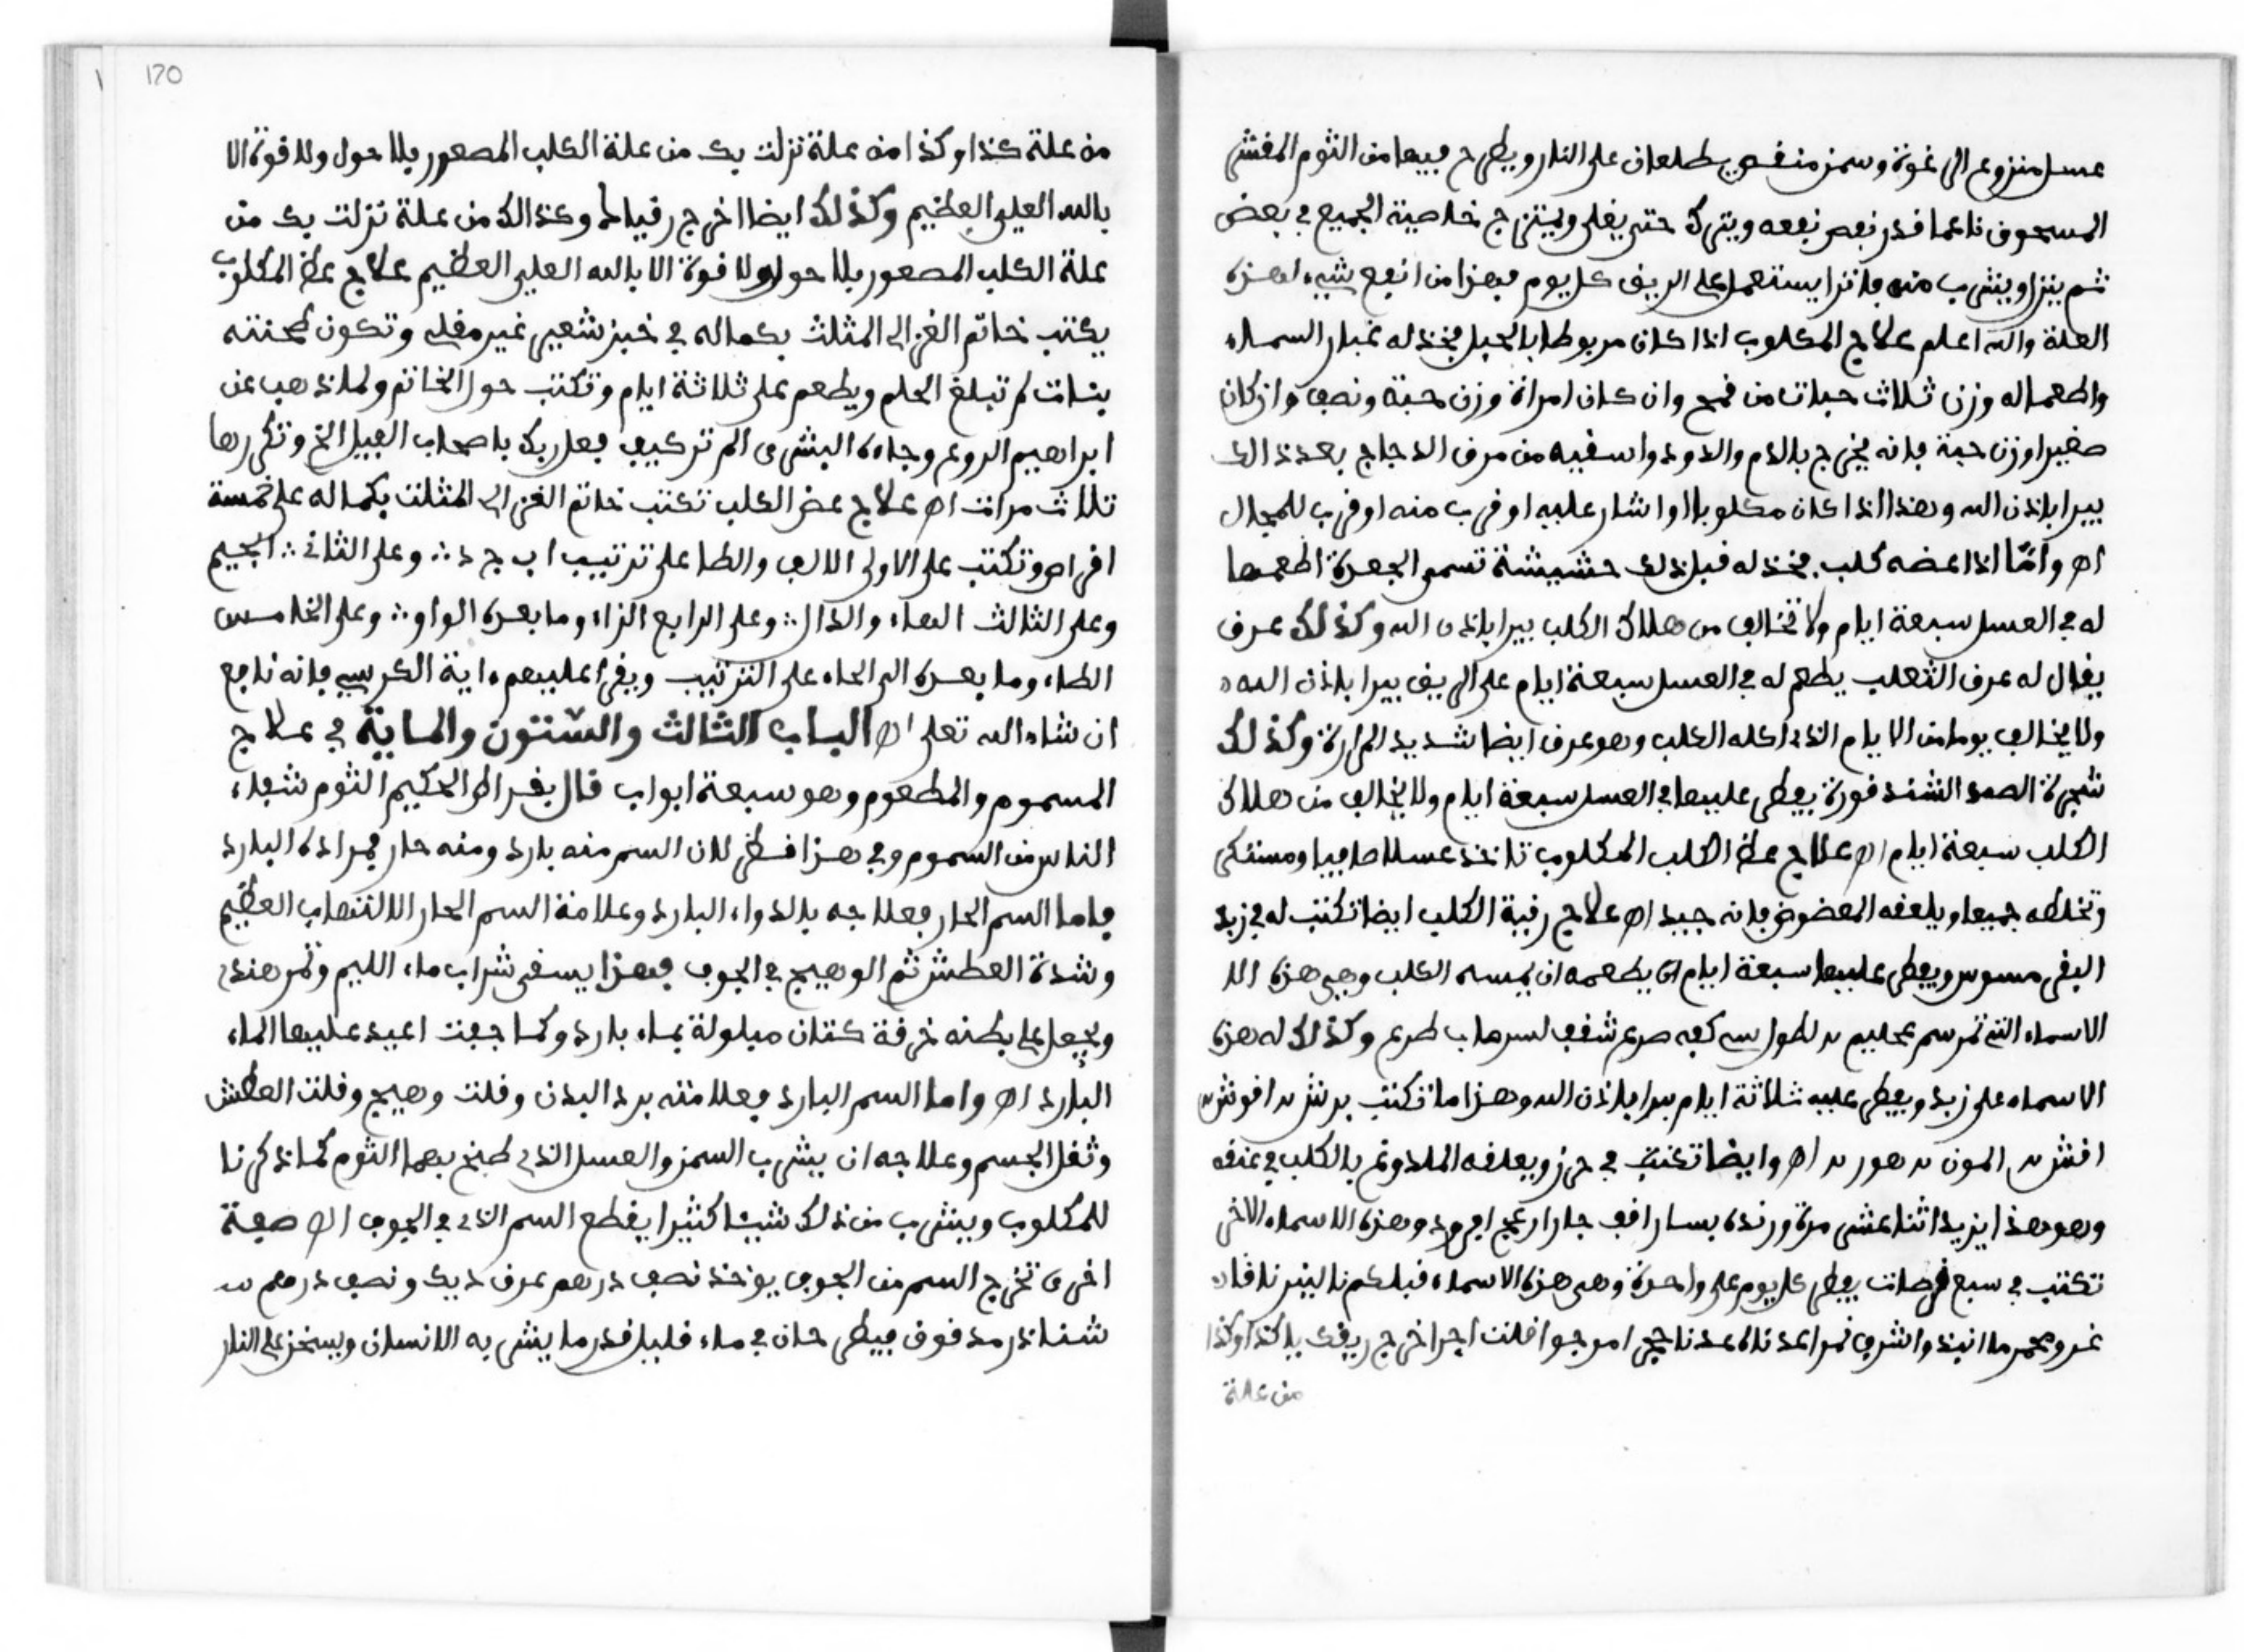 عسل منزوع الرغوة وسمن منقص يطلعان على النار ويطرح فيهما من الثوم المقشر
المسحوق ناعما قدر نصف نصفه ويترك حتى يغلى ويمتزج خاصية الجميع في بعض
ثم ينزل ويشرب منه فاترا يستعمل على الريق كل يوم فهذا من انفع شيء لهذه
العلة والله اعلم علاج المكلوب اذا كان مربوطا بالحبل فخذ له غبار السماء
واطعمه له وزن ثلاث حبات من قمح وان كان امراة وزن حبة ونصف وان كان
صغيرا وزن حبة فانه يخرج بالدم والدود واسقيه من مرق الدجاج بعد ذالك
يبرا باذن الله وهذا اذا كان مكلوبا او اشار عليه او قرب منه او قرب للمجال
اه واما اذا عضه كلب فخذ له قبل ذلك حشيشة تسمى الجعدة اطعمها
له في العسل سبعة ايام ولا تخالف من هلاك الكلب يبرا باذن الله وكذلك عرق
يقال له عرق الثعلب يطعم له في العسل سبعة ايام على الريق يبرا باذن الله
ولا يخالف يوما من الايام الذي اكله الكلب وهو عرق ايضا شديد المرارة وكذلك
شجرة الصمد الشندقورة يفطر عليها في العسل سبعة ايام ولا يخالف من هلاك
الكلب سبعة ايام اه علاج عظ الكلب المكلوب تاخذ عسلا صافيا ومستكى
وتخلطه جميعا ويلعقه المعضوض فانه جيد اه علاج رقية الكلب ايضا تكتب له في زبد
البقر مسوس ويفطر عليها سبعة ايام اى يطعمه ان يمسه الكلب وهي هذه الا
الاسماء التي ترسم وكذلك له هذه
الاسماء على زبد ويفطر عليه ثلاثة ايام يبرا باذن الله وهذا ما تكتب
اه وايضا تكتب في حرز ويعلقه الملدوغ بالكلب في عنقه
وهو هذا يزيد اثنا عشر مرة وهذه الاسماء الاخر
تكتب في سبع قرصات يفطر كل يوم على واحدة وهي هذه الاسماء
اخرج ريقك يا كذا وكذا
من علة
170
من علة كذا وكذا من علة نزلت بك من علة الكلب المصعور بلا حول ولا قوة الا
بالله العلي العظيم وكذلك ايضا اخرج وكذالك من علة نزلت بك من
علة الكلب المصعور بلا حول ولا قوة الا بالله العلي العظيم علاج عظ المكلوب
يكتب خاتم الغزالى المثلث بكماله في خبز شعير غير مقلى وتكون طحنته
بنات لم تبلغ الحلم ويطعم على ثلاثة ايام وتكتب حول الخاتم ولما ذهب عن
ابراهيم الروع وجاءه البشرى الم تر كيف فعل ربك باصحاب الفيل الخ وتكررها
ثلاث مرات اه علاج عض الكلب تكتب خاتم الغزالى المثلث بكماله على خمسة
اقراص وتكتب على الاولى الالف والطا على ترتيب ا ب ج د وعلى الثانى الجيم
وعلى الثالث الهاء والدال وعلى الرابع الزاء وما بعده الواو وعلى الخامس
الطاء وما بعده الى الحاء على الترتيب ويقرأ عليهم ءاية الكرسي فانه نافع
ان شاء الله تعلى اه الباب الثالث والستون والماية في علاج
المسموم والمطعوم وهو سبعة ابواب قال بقراط الحكيم الثوم شفاء
الناس من السموم وفي هذا لان السم منه بارد ومنه حار البارد
فاما السم الحار فعلاجه بالدواء البارد وعلامة السم الحار الالتهاب العظيم
وشدة العطش ثم الوهيج في الجوف فهذا يسقى شراب ماء الليم وتمر هندي
ويجعل على بطنه خرقة كتان مبلولة بماء بارد وكلما جفت اعيد عليها الماء
البارد اه واما السم البارد فعلامته برد البدن وقلت وهيج وقلت العطش
وثقل الجسم وعلاجه ان يشرب السمن والعسل الذي طبخ بهما الثوم كما ذكرنا
للمكلوب ويشرب من ذلك شيئا كثيرا يقطع السم الذي في الجوف اه صفة
اخرى تخرج السم من الجوف يوخذ نصف درهم عرف ديك ونصف درهم
مدقوق في ماء قليل قدر ما يشربه الانسان ويسخن على النار